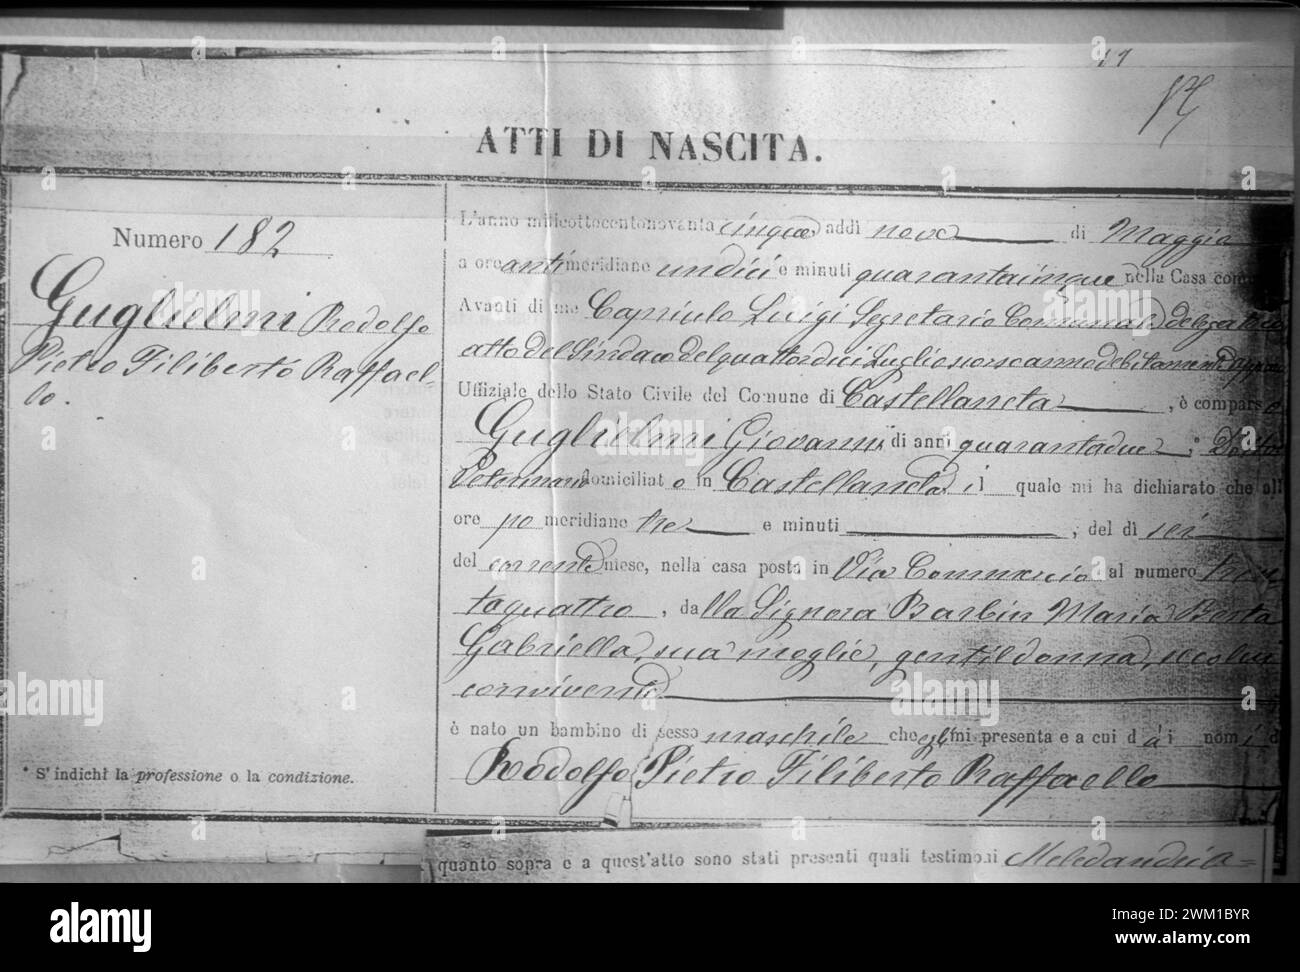 17
ATTI DI NASCITA.
Numero 182
Guglielmi Rodolfo
Pietro Filiberto Raffael-
lo.
* S'indichi la professione o la condizione.
L'anno milleottocentonovanta cinque, addì nove di Maggio
a ore anti meridiane undici e minuti quarantacinque nella Casa com
Avanti di me Capriulo Luigi Segretario Comunale delegato con
atto del Sindaco del quattordici Luglio scorso anno debitamente appro
Uffiziale dello Stato Civile del Comune di Castellaneta, è comparso
Guglielmi Giovanni di anni quarantadue, * Dottor
Veterinario domiciliato in Castellaneta il quale mi ha dichiarato che all
ore po meridiane tre e minuti , del dì sei
del corrente mese, nella casa posta in Via Commercio al numero trenta
taquattro, dalla Signora Barbin Maria Berta
Gabriella, sua moglie, gentildonna, seco lui
convivente
è nato un bambino di sesso maschile che egli mi presenta e a cui dà i nomi d
Rodolfo Pietro Filiberto Raffaello
quanto sopra e a quest'atto sono stati presenti quali testimoni Melodandria=
alamy
alamy
Image ID: 2WM1BYR
www.alamy.com